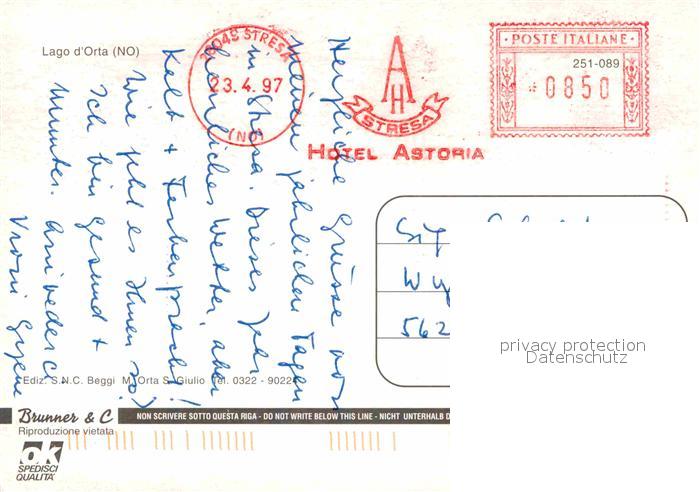 Lago d'Orta (NO)
28049 STRESA
23.4.97
(NO)
A
H
STRESA
HOTEL ASTORIA
POSTE ITALIANE
251-089
0850
Herzliche Grüsse von
meinen jährlichen Tagen
in Stresa. Dieses Jahr
herrliches Wetter, aber
Kalt + Farbenpracht!
Wie geht es Ihnen so?
Ich bin gesund +
munter. Arivederci
Vroni
562
privacy protection
Datenschutz
Ediz. S.N.C. Beggi M. Orta S. Giulio Tel. 0322 - 9022
Brunner & C
NON SCRIVERE SOTTO QUESTA RIGA - DO NOT WRITE BELOW THIS LINE - NICHT UNTERHALB D
Riproduzione vietata
ok
SPEDISCI
QUALITA'